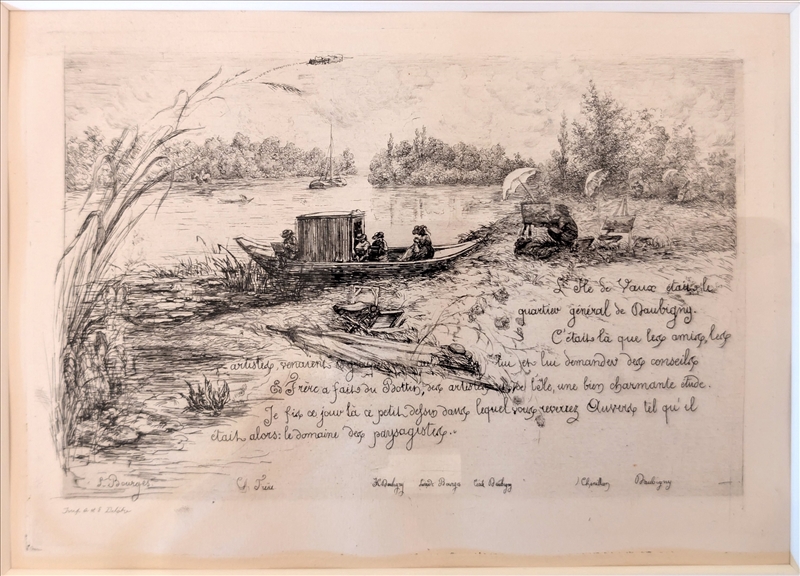 L'Ile de Vaux était le
quartier général de Daubigny.
C'était là que les amis, les
artistes, venaient lui et lui demander des conseils
Ed Frère a fait du Bottin, des artistes de l'île, une bien charmante étude.
Je fis ce jour là ce petit dessin dans lequel vous reverrez Auvers tel qu'il
était alors: le domaine des paysagistes.
L. Bourges Ed. Frère K. Daubigny Léonide Bourges Cécile Daubigny Daubigny